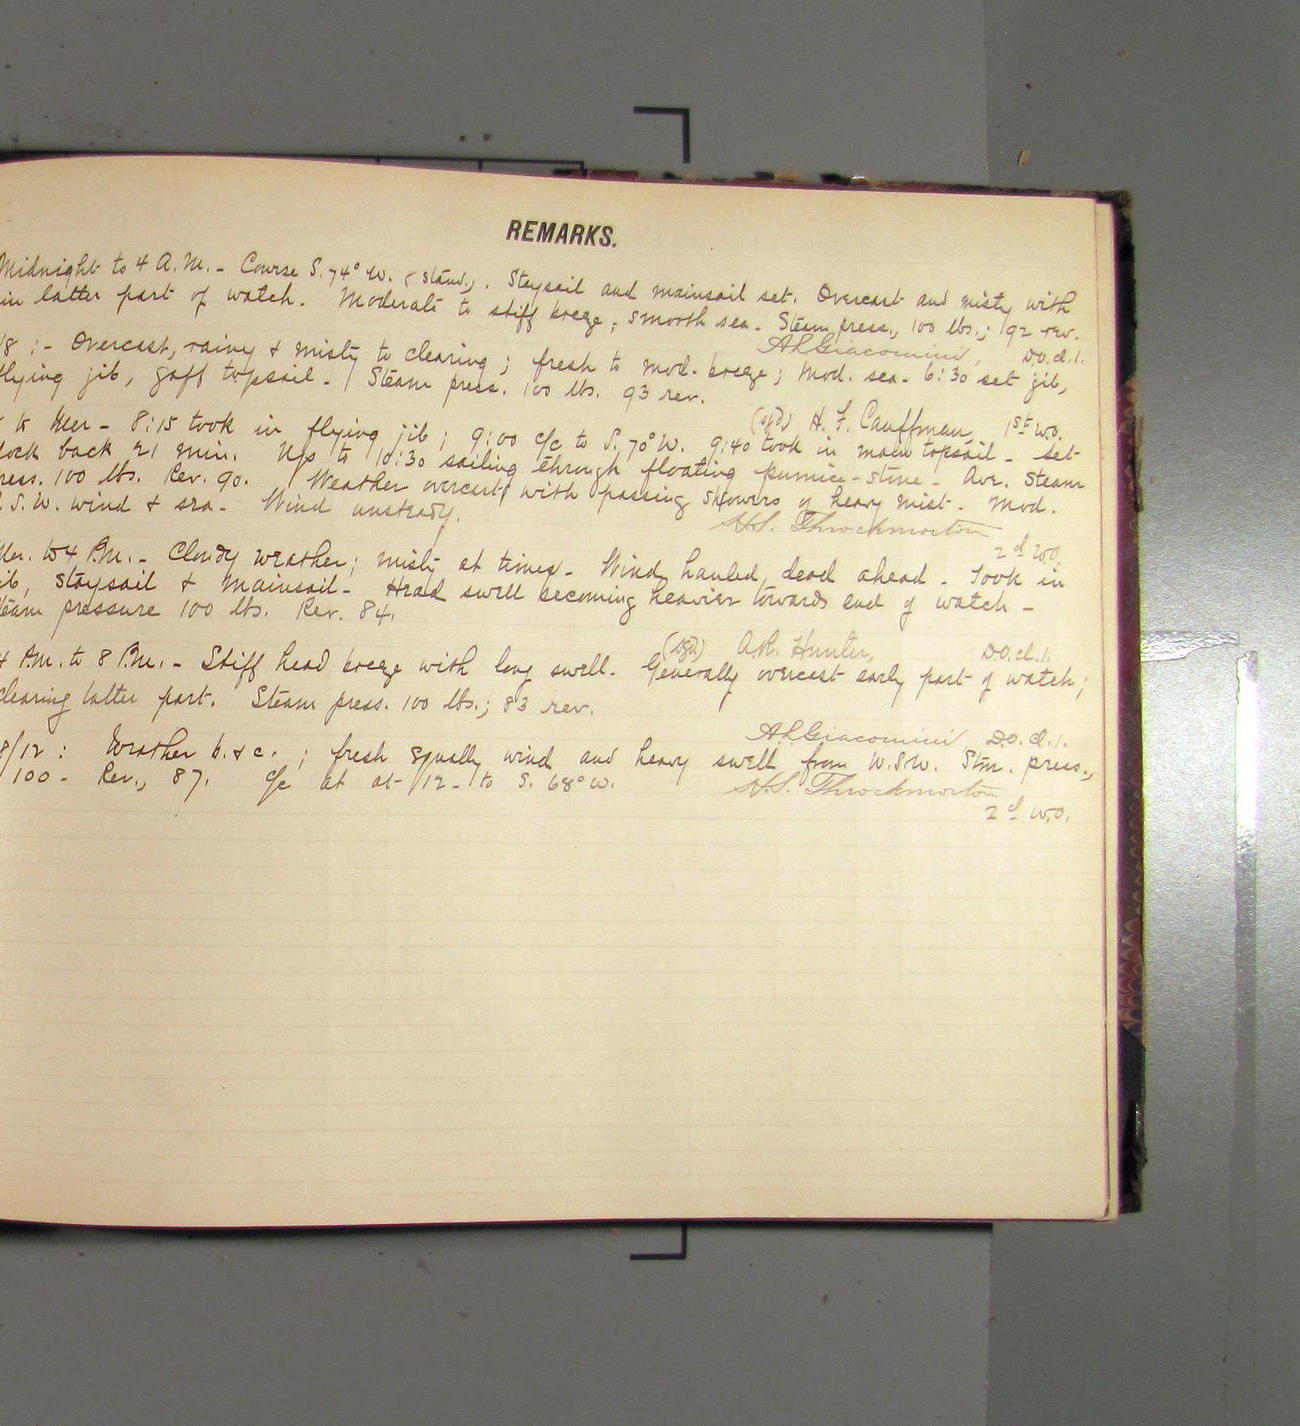 REMARKS.
Midnight to 4 A.M. - Course S. 74° W. (stand.). Staysail and mainsail set. Overcast and misty with
in latter part of watch. Moderate to stiff breeze; smooth sea. Steam press., 100 lbs.; 92 rev.
A L Giacomini, D.O. cl. 1.
/8 :- Overcast, rainy & misty to clearing; fresh to mod. breeze; Mod. sea. 6:30 set jib,
flying jib, gaff topsail. Steam press. 100 lbs. 93 rev.
(sgd) H. F. Cauffman, 1st W.O.
to Mer - 8:15 took in flying jib; 9:00 c/c to S. 70° W. 9:40 took in main topsail. Set
lock back 21 min. Up to 10:30 sailing through floating pumice-stone. Avr. Steam
ress. 100 lbs. Rev. 90. Weather overcast with passing showers of heavy mist. Mod.
. S. W. wind & sea. Wind unsteady.
H.S. Throckmorton
2d W.O.
Mer. to 4 P.M. - Cloudy weather; misty at times. Wind hauled dead ahead. Took in
ib, staysail & mainsail. Head swell becoming heavier towards end of watch -
team pressure 100 lbs. Rev. 84.
(sgd) A.R. Hunter, D.O. cl. 1.
4 P.M. to 8 P.M. - Stiff head breeze with long swell. Generally overcast early part of watch;
clearing latter part. Steam press. 100 lbs.; 83 rev.
A L Giacomini D.O. cl. 1.
8/12 : Weather b. & c. ; fresh squally wind and heavy swell from W.S.W. Stm. press.,
100 - Rev., 87. c/c at at 12 - to S. 68° W.
H.S. Throckmorton
2d W.O.